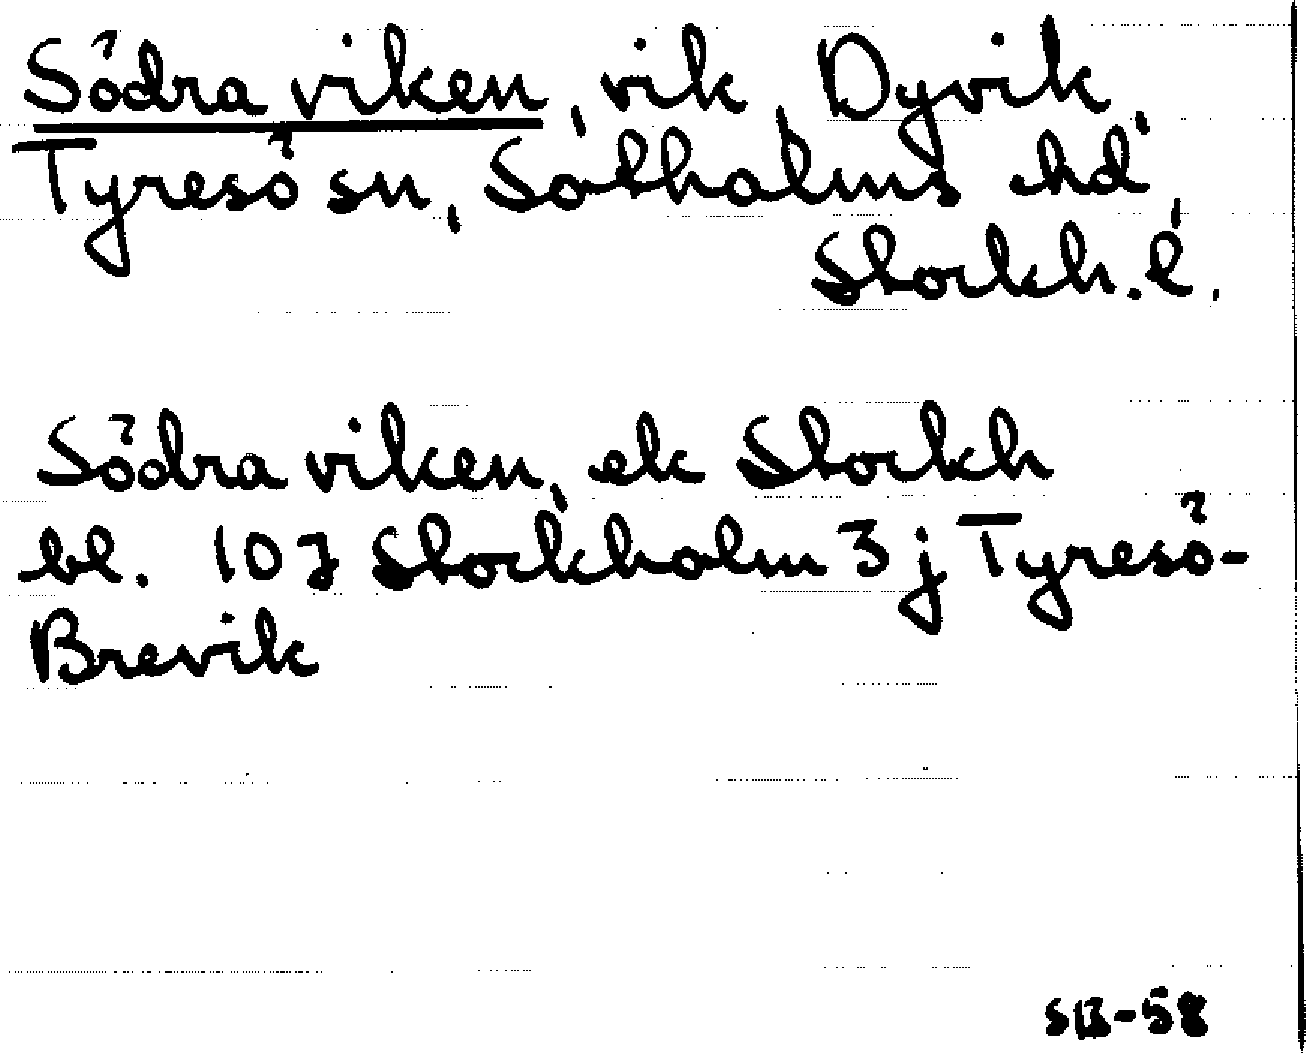 Södra viken, vik, Dyvik,
Tyresö sn, Sotholms hd,
Stockh. l.
Södra viken, ek Stockh
bl. 107 Stockholm 3 j Tyresö-
Brevik
SB-58